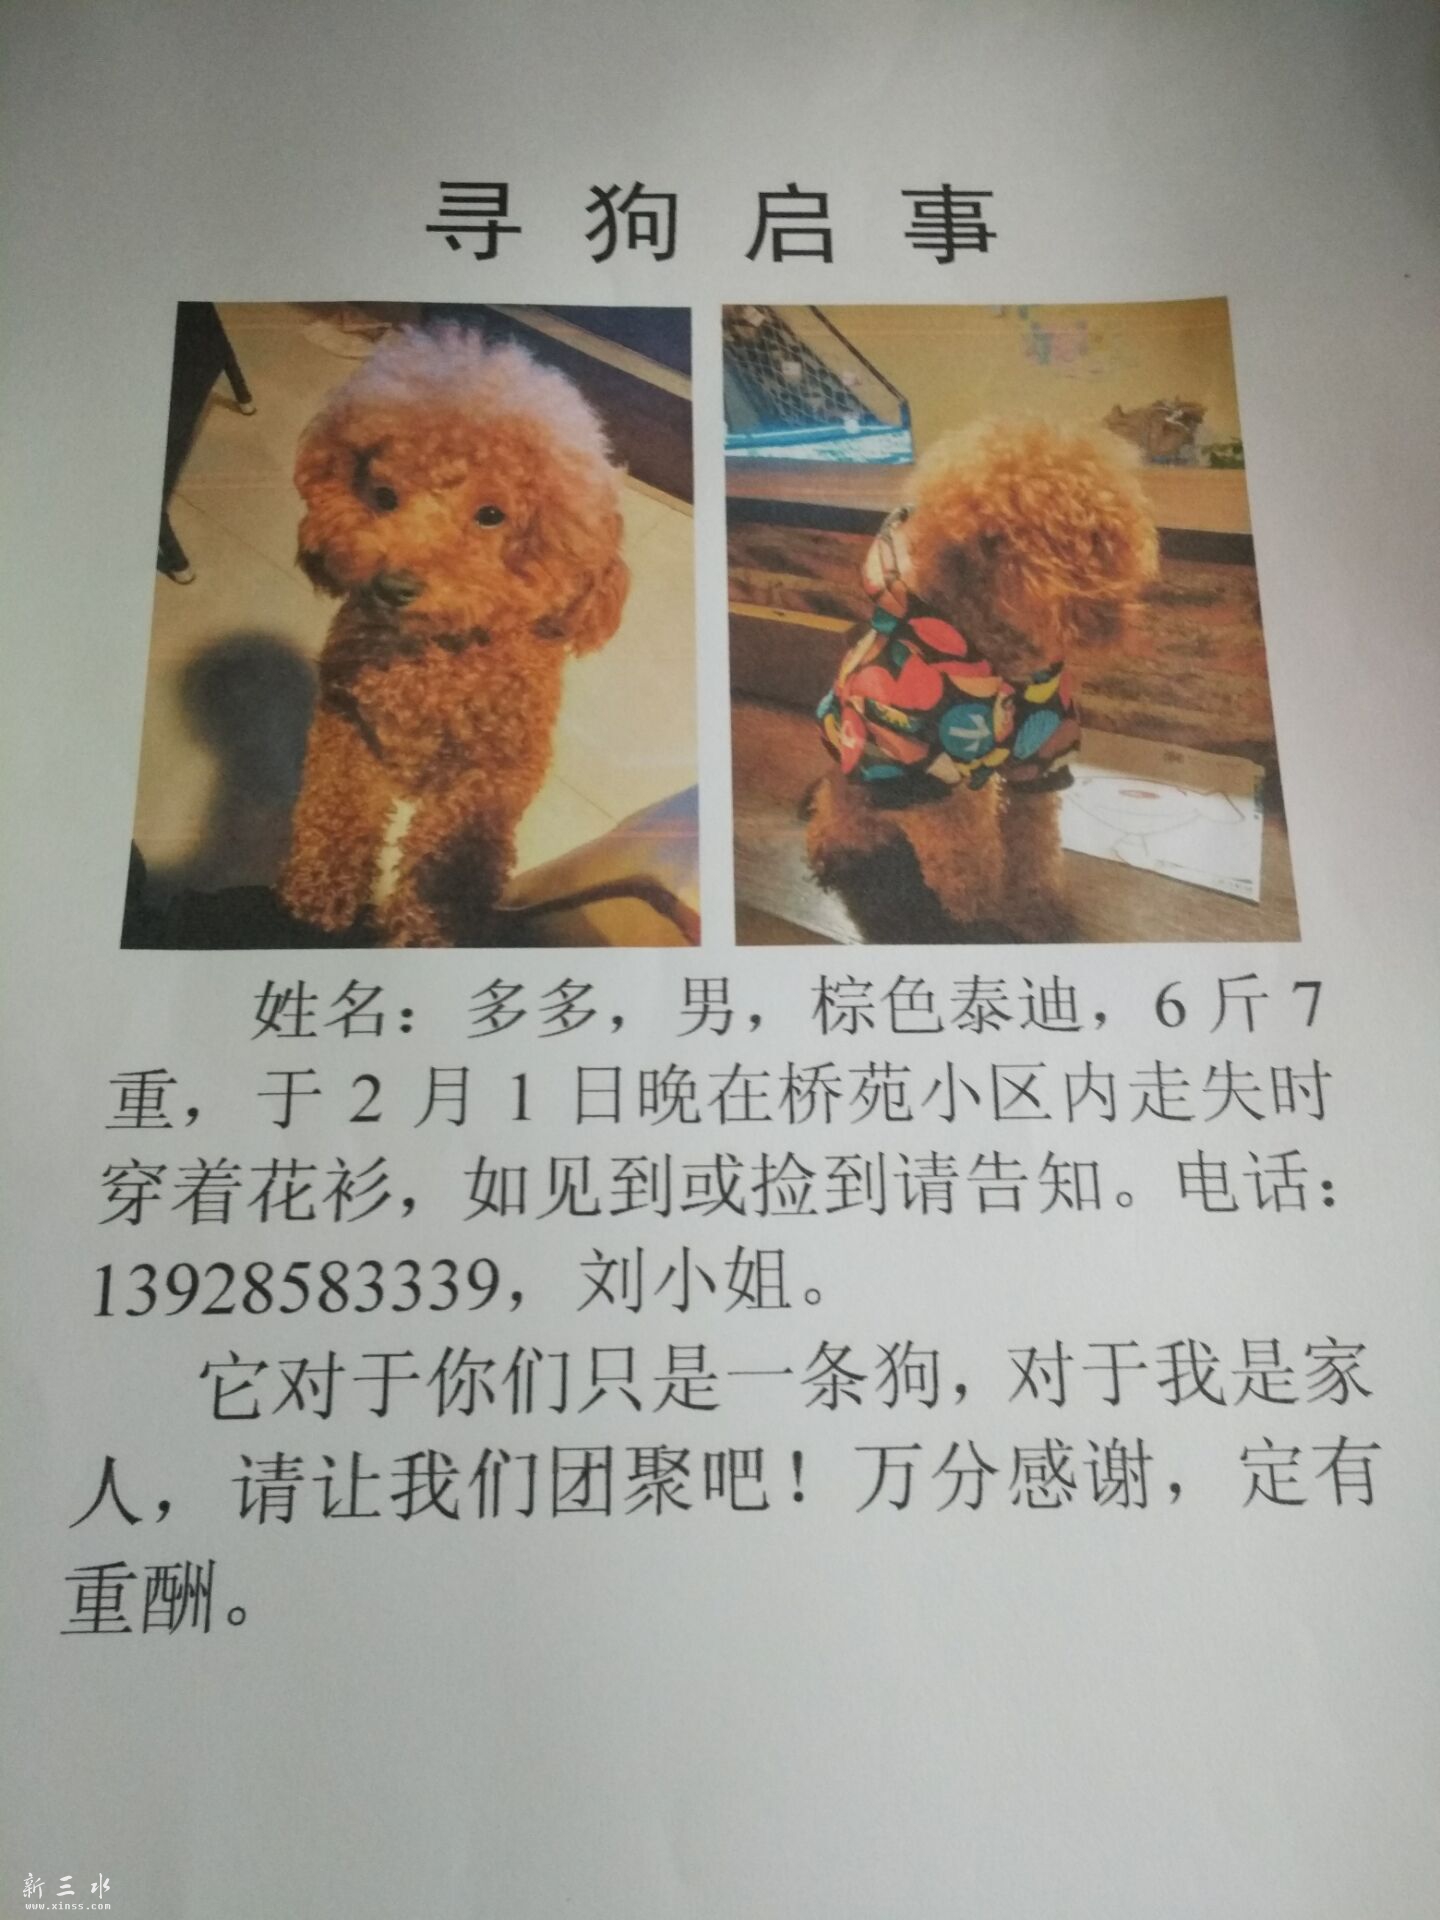 寻狗启事
姓名：多多，男，棕色泰迪，6斤7
重，于2月1日晚在桥苑小区内走失时
穿着花衫，如见到或捡到请告知。电话：
13928583339，刘小姐。
它对于你们只是一条狗，对于我是家
人，请让我们团聚吧！万分感谢，定有
重酬。
新三水
www.xinss.com